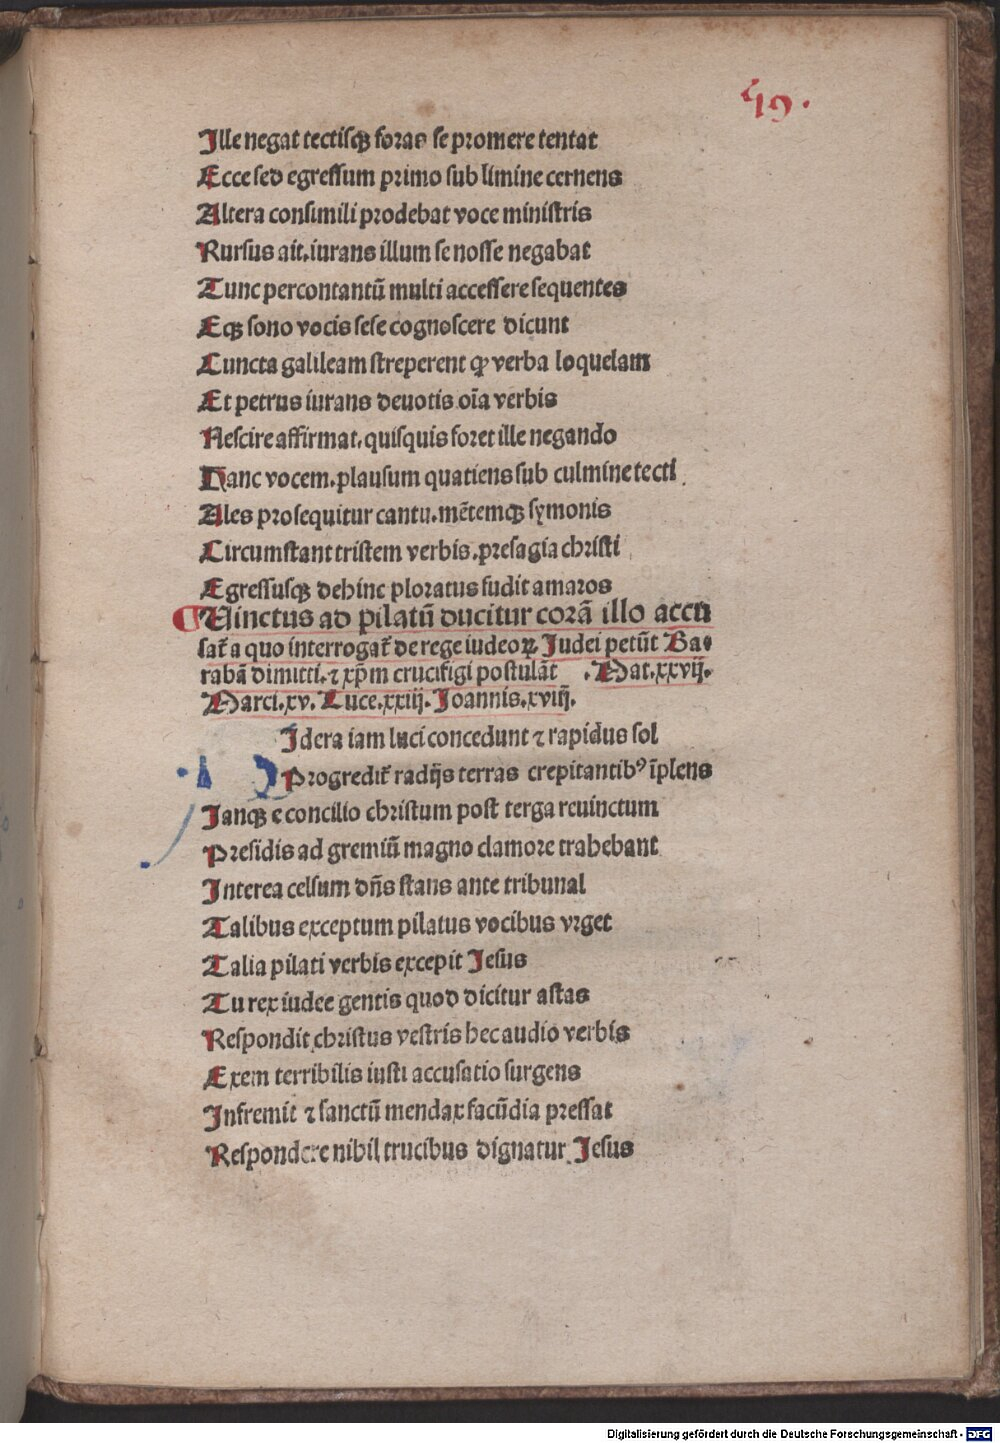 49.
Ille negat tectisqꝫ foras se promere tentat
Ecce sed egressum primo sub limine cernens
Altera consimili prodebat voce ministris
Rursus ait.iurans illum se nosse negabat
Tunc percontantū multi accessere sequentes
Eqꝫ sono vocis sese cognoscere dicunt
Cuncta galileam streperent ꝙ verba loquelam
Et petrus iurans deuotis oīa verbis
Nescire affirmat.quisquis foret ille negando
Hanc vocem.plausum quatiens sub culmine tecti
Ales prosequitur cantu.mētemqꝫ symonis
Circumstant tristem verbis.presagia christi
Egressusqꝫ dehinc ploratus fudit amaros
¶Uinctus ad pilatū ducitur corā illo accu
sat᷑ a quo interrogat᷑ de rege iudeoꝝ. Iudei petūt Ba-
rabā dimitti.⁊ xp̄m crucifigi postulāt .Mat.xxvij.
Marci.xv. Luce.xxiij. Joannis.xviij.
Idera iam luci concedunt ⁊ rapidus sol
Progredit᷑ radijs terras crepitantibꝰ īplens
Janqꝫ e concilio christum post terga reuinctum
Presidis ad gremiū magno clamore trahebant
Interea celsum dn̄s stans ante tribunal
Talibus exceptum pilatus vocibus vrget
Talia pilati verbis excepit Jesus
Tu rex iudee gentis quod dicitur astas
Respondit christus vestris hec audio verbis
Exem terribilis iusti accusatio surgens
Infremit ⁊ sanctū mendax facūdia pressat
Respondere nihil trucibus dignatur Jesus
Digitalisierung gefördert durch die Deutsche Forschungsgemeinschaft - DFG